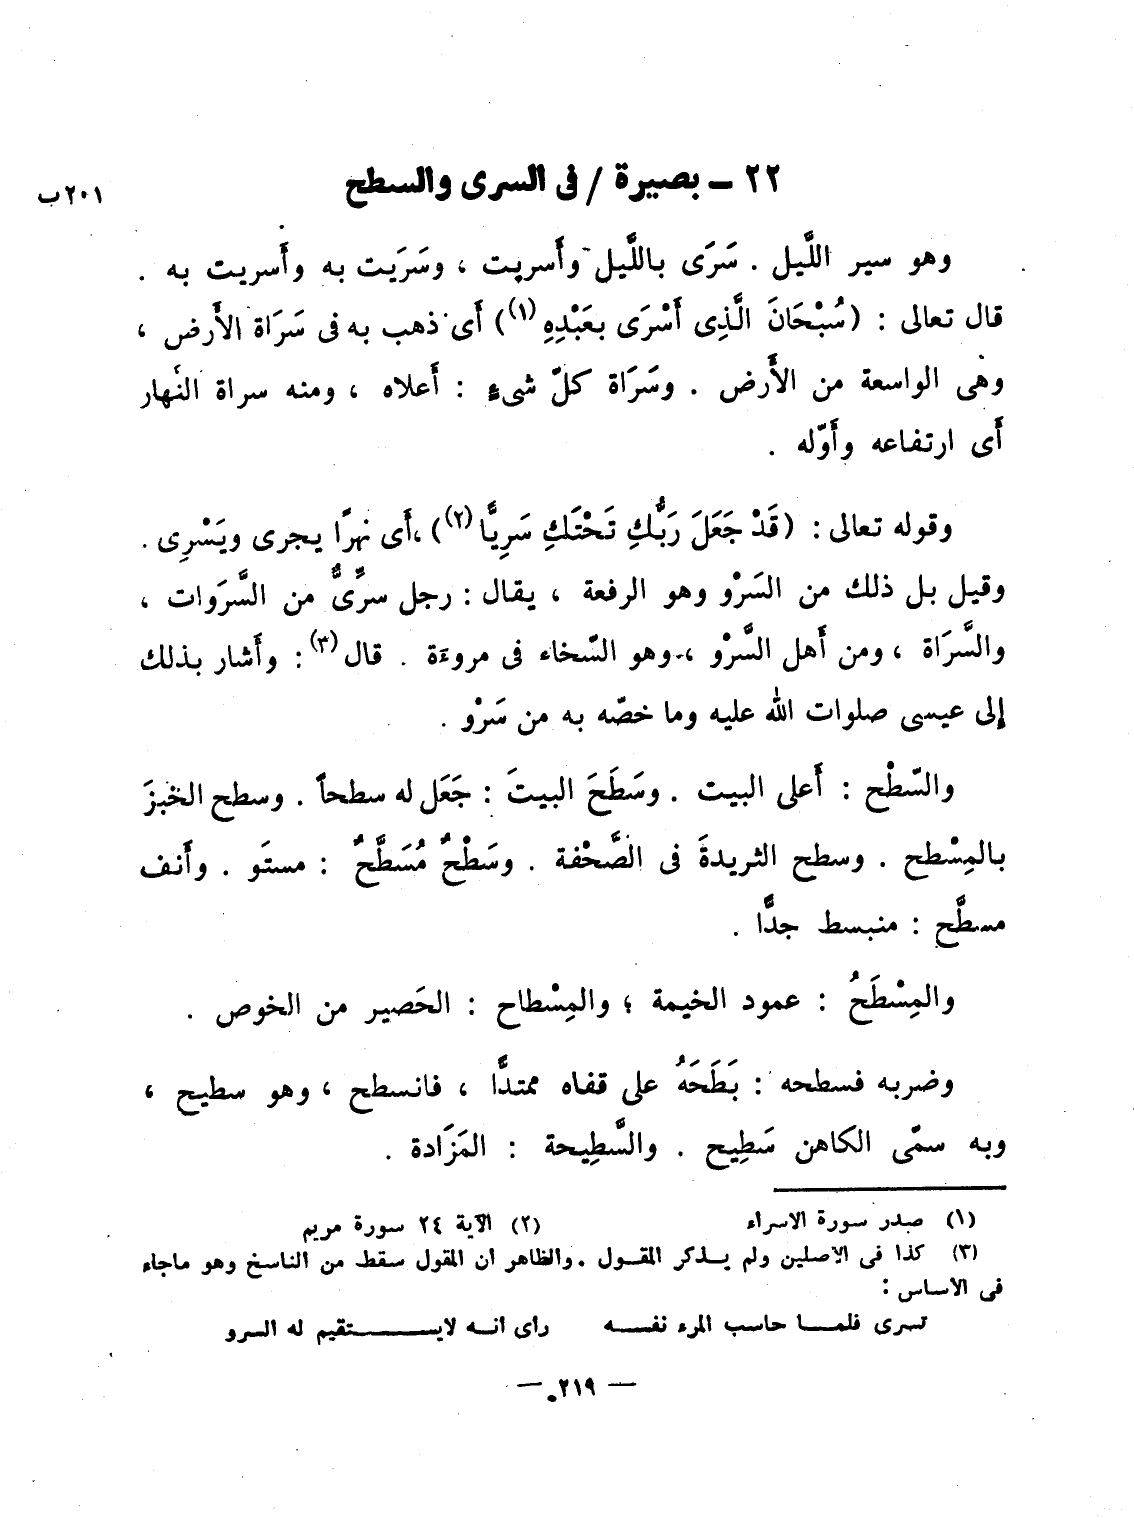 ٢٢ - بصيرة / فى السرى والسطح
٢٠١ب
وهو سير اللَّيل . سَرَى باللَّيل وأَسريت ، وسَرَيت به وأَسريت به .
قال تعالى : (سُبْحَانَ الَّذِى أَسْرَى بعَبْدِهِ(١)) أَى ذهب به فى سَرَاة الأَرض ،
وهى الواسعة من الأَرض . وسَرَاة كلّ شىء : أَعلاه ، ومنه سراة النهار
أَى ارتفاعه وأَوّله .
وقوله تعالى : (قَدْ جَعَلَ رَبُّكِ تَحْتَكِ سَرِيًّا(٢)) ،أَى نهرًا يجرى ويَسْرِى .
وقيل بل ذلك من السَرْو وهو الرفعة ، يقال : رجل سرِىٌّ من السَّرَوات ،
والسَّرَاة ، ومن أَهل السَّرْو ، وهو السّخاء فى مروءَة . قال(٣) : وأَشار بذلك
إلى عيسى صلوات الله عليه وما خصّه به من سَرْو .
والسّطْح : أَعلى البيت . وسَطَحَ البيتَ : جَعَل له سطحاً . وسطح الخبزَ
بالمِسْطح . وسطح الثريدةَ فى الصَّحْفة . وسَطْحٌ مُسَطَّحٌ : مستَو . وأَنف
مسطَّح : منبسط جدًّا .
والمِسْطَحُ : عمود الخيمة ؛ والمِسْطاح : الحَصير من الخوص .
وضربه فسطحه : بَطَحَهُ على قفاه ممتدًّا ، فانسطح ، وهو سطيح ،
وبه سمّى الكاهن سَطِيح . والسَّطِيحة : المَزَادة .
(١) صدر سورة الاسراء (٢) الآية ٢٤ سورة مريم
(٣) كذا فى الاصلين ولم يــذكر المقــول . والظاهر ان المقول سقط من الناسخ وهو ماجاء
فى الاساس :
تسرى فلمـــا حاسب المرء نفســه راى انــه لايـــــستقيم له السرو
— ٢١٩ —